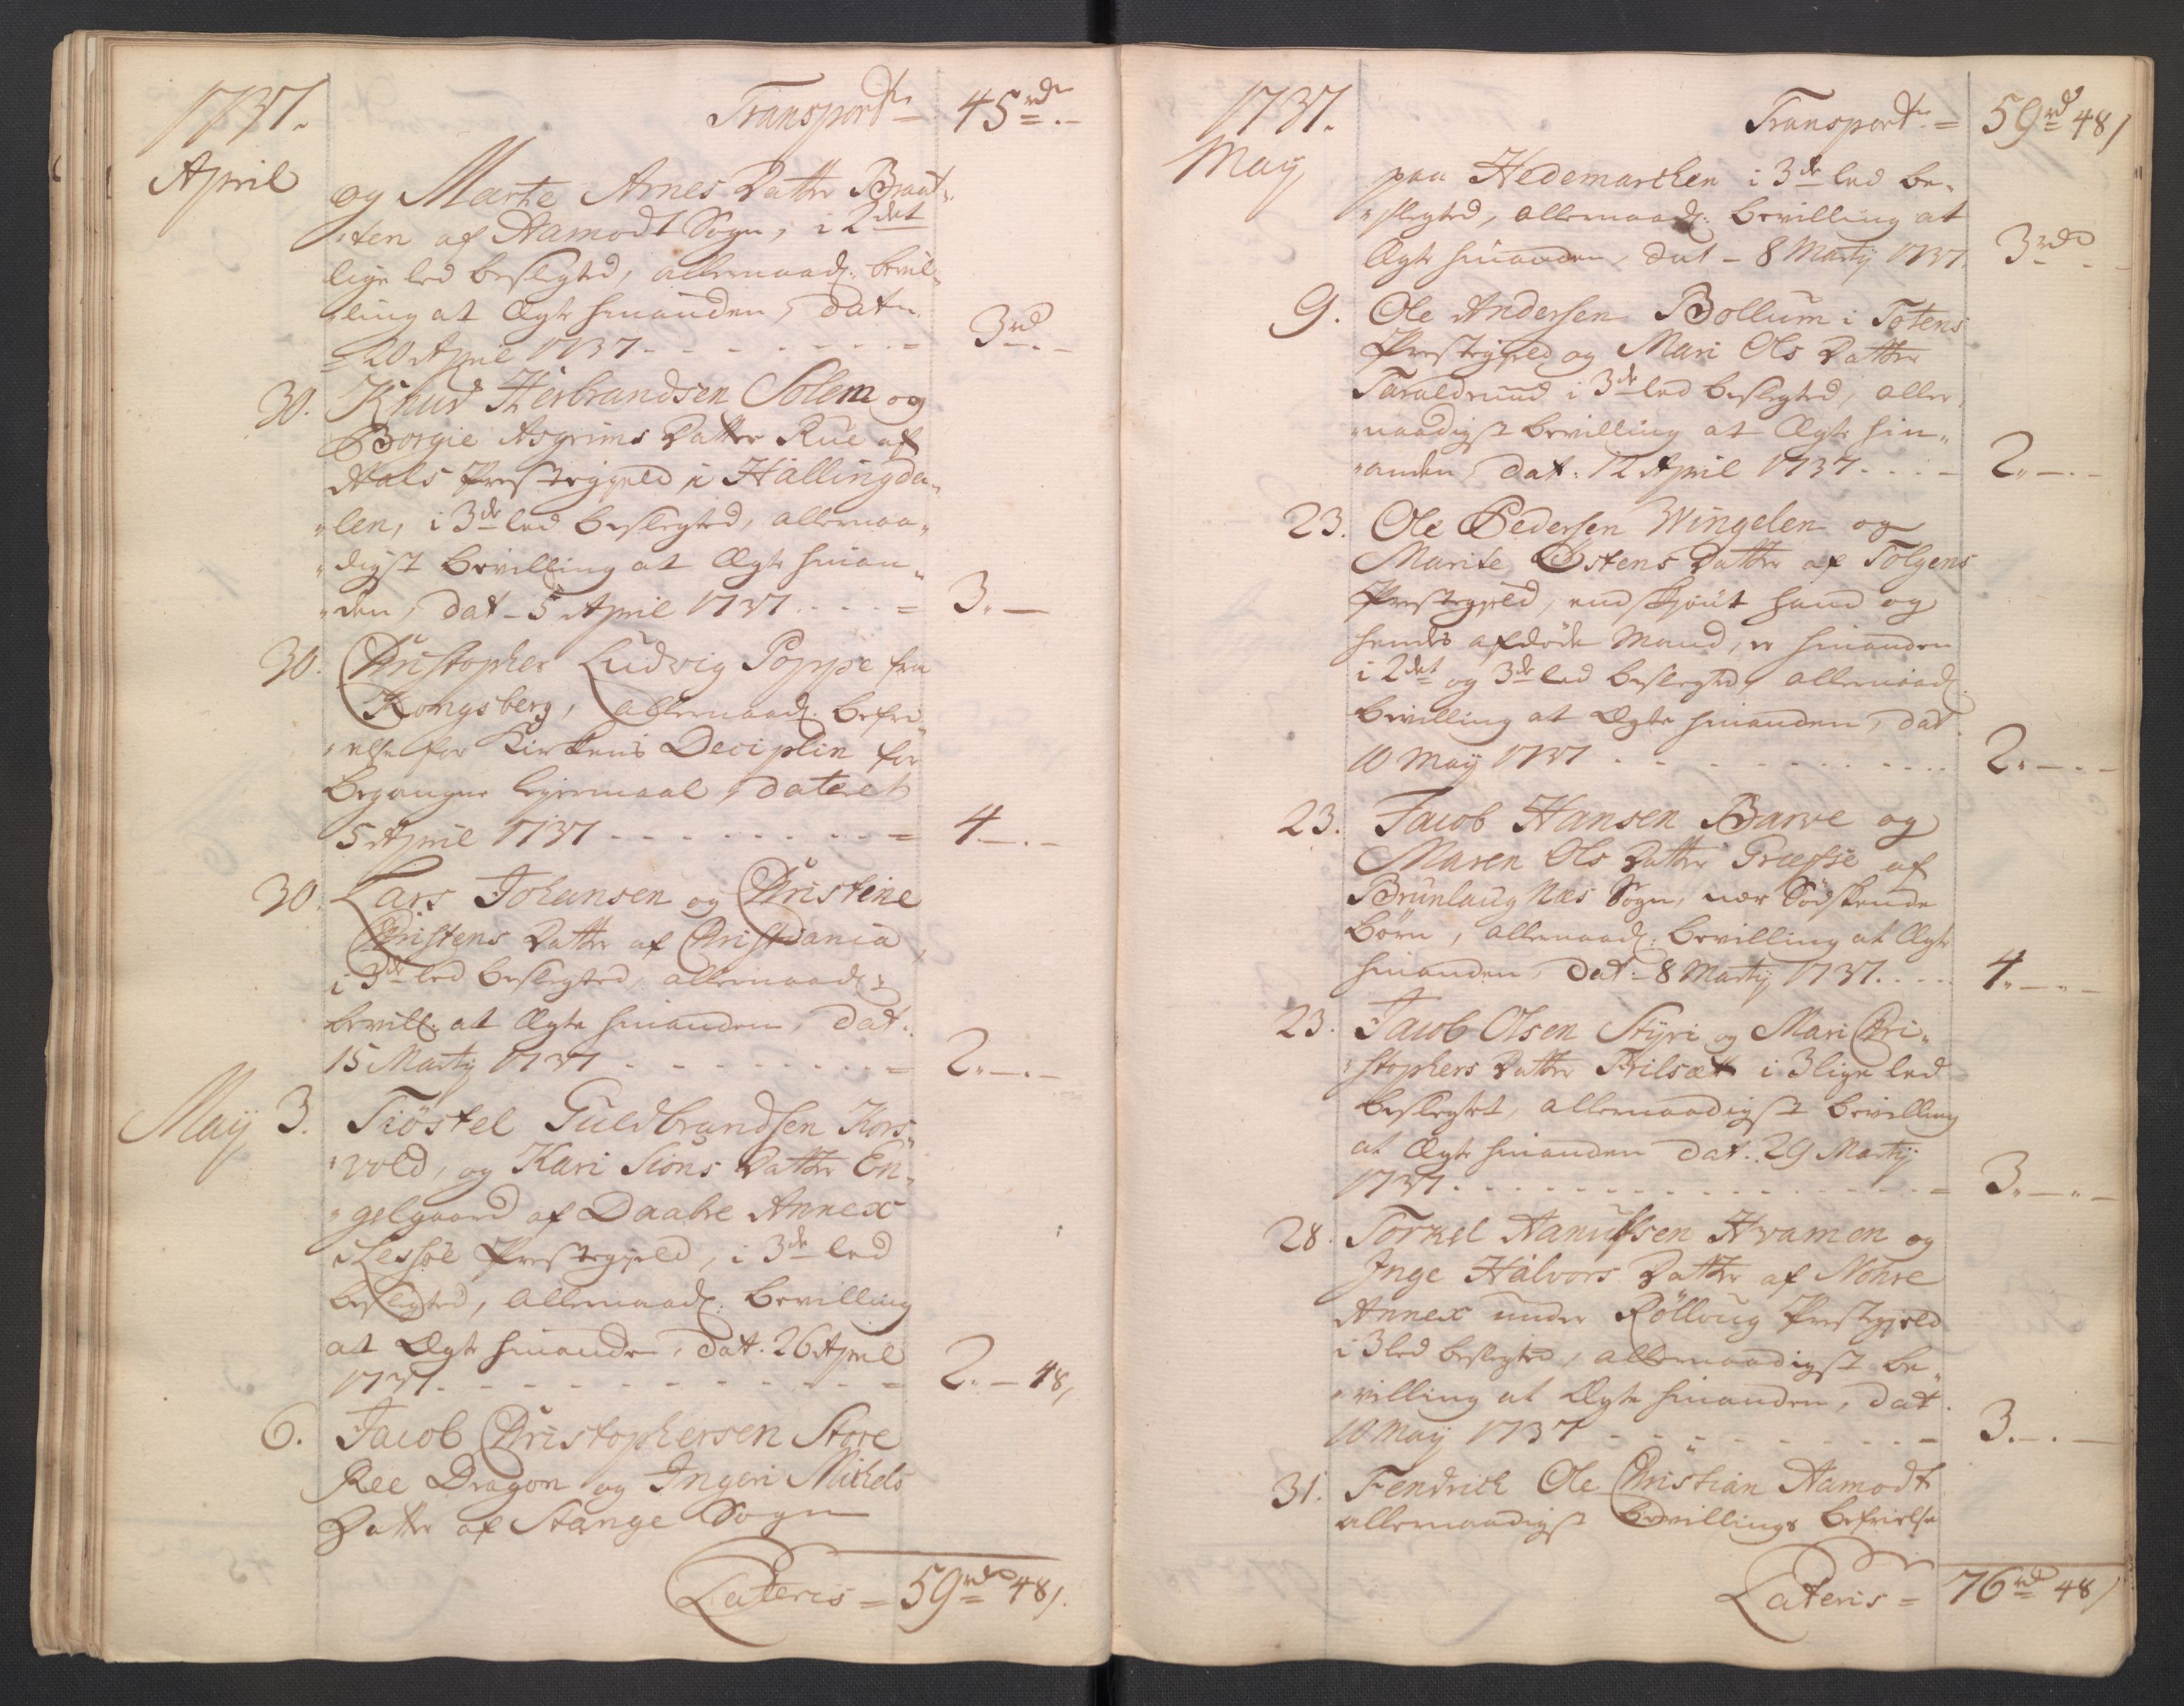 1737. Transport = 45 rd. -
April og Marte Arnes Datter Braat-
"ten af Aamodt Sogn, i 2det
lige led beslegted, allernaad: bevil-
"ling at Ægte hinanden, dat.
20 April 1737 - - - - - - = 3 rd. -
30. Knud Herbrandsen Solem og
Borgie Asgrims Datter Rue af
Aals Prestegjeld i Hallingda-
"len, i 3de led beslegted, allernaa-
"digst bevilling at Ægte hinan-
"den, dat - 5 April 1737 . . . . = 3. -
30. Christopher Ludvig Poppe fra
Kongsberg, allernaad: befri-
"else for Kirkens Deciplin for
begangne leyermaal, dateret
5 April 1737 - - - - - - - = 4 - . -
30. Lars Johansen og Christine
Christens Datter af Christiania,
i 3de led beslegted, allernaad:
bevill: at Ægte hinanden, dat.
15 Martij 1737 - - - - - - = 2. - . -
May 3. Tiöstel Guldbrandsen Kors-
"vold, og Kari Sions Datter En-
"gelgaard af Daabre Annex
Lessöe Prestegjeld, i 3de led
beslegted, allernaad: bevilling
at Ægte hinanden, dat. 26 April
1737 - - - - - - - - = 2. - 48/
6. Jacob Christophersen Store
Ree Dragon og Ingeri Mickels
Datter af Stange Sogn
Lateris = 59 rd 48/.
1737. Transport = 59 rd 48/
May paa Hedemarcken i 3de led be-
"slegted, allernaad: bevilling at
Ægte hinanden, dat - 8 Martij 1737. 3 rd - -
9. Ole Andersen Bollum i Totens
Prestegjeld og Mari Ols Datter
Taraldruud i 3de led beslegted, aller-
"naadigst bevilling at Ægte hin-
"anden, dat. 12 April 1737 . . . - 2. - . -
23. Ole Pedersen Wingelen og
Marite Östens Datter af Tolgens
Prestegjeld, endskjönt hand og
hendes afdöde Mand, er hinanden
i 2det og 3de led beslegted, allernaad:
bevilling at Ægte hinanden, dat.
10 May 1737 . - - - - - . . . 2. - . -
23. Jacob Hansen Barve og
Maren Ols Datter Græfsie af
Brunlaugnæs Sogn, nær Södskende
börn, allernaad: bevilling at Ægte
hinanden, dat - 8 Martij 1737 . . . . 4. - . -
23. Jacob Olsen Styri og Mari Chri-
"stophers Datter Trilsæt i 3 lige led
beslegtet, allernaadigst bevilling
at Ægte hinanden dat. 29 Martij
1737 . - - - - - - - - - = 3. - . -
28. Torkel Aanulfsen Hvamen og
Inge Halvors Datter af Nohre
Annex under Rölloug Prestegjeld
i 3 led beslegted, allernaadigst be-
"villing at Ægte hinanden, dat.
10 May 1737 - - - - - - - - 3. - . -
31. Fendrich Ole Christian Aamodt
allernaadigst bevillings befrielse
Lateris = 76 rd 48/